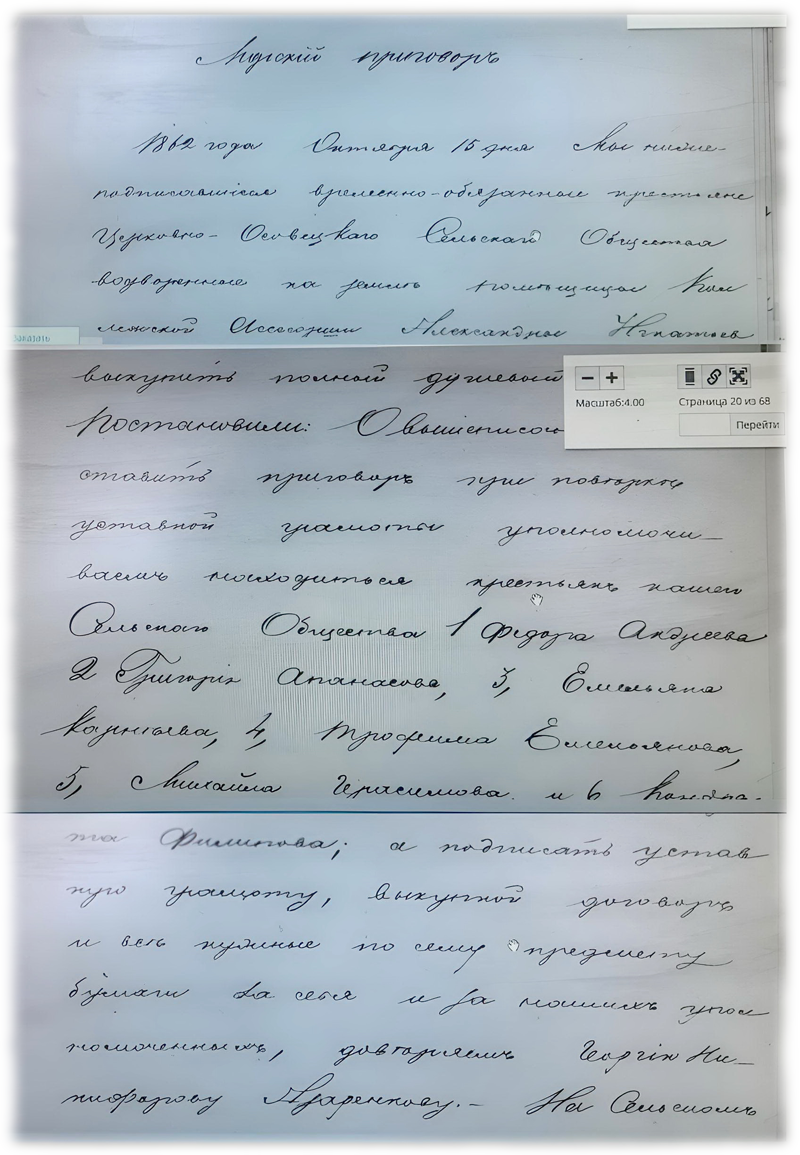 Мірскій приговоръ
1862 года Октября 15 дня Мы ниже-
подписавшіеся временно-обязанные крестьяне
Церковно- Осовецкаго Сельскаго Общества
водворенные на землѣ помѣщицы Кол
лежской Ассесорши Александры Игнатьев
Заказать
выкупить полный душевый
Постановили: О вышеписан
ставить приговоръ при повѣркѣ
уставной грамоты уполномочи-
ваемъ находиться крестьянъ нашего
Сельскаго Общества 1 Федора Андреева
2 Григорія Апанасова, 3, Емельяна
5, Михайла Герасимова. и 6 Кондра-
та Филипова; а подписать устав
ную грамоту, выкупной договоръ
и всѣ нужные по сему предмету
бумаги за себя и за нашихъ упол
номоченныхъ, довѣряемъ Георгію Ни-
кифорову Азаренкову.- На Сельскомъ
Масштаб:4.00
Страница 20 из 68
Перейти